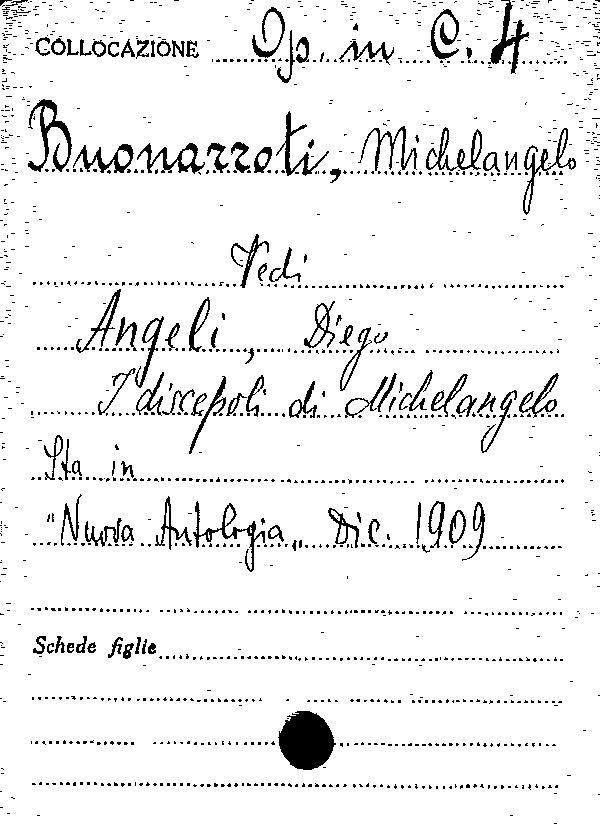 COLLOCAZIONE Op. in C. 4
Buonarroti, Michelangelo
Vedi
Angeli, Diego
I discepoli di Michelangelo
Sta in
"Nuova Antologia„ Dic. 1909
Schede figlie